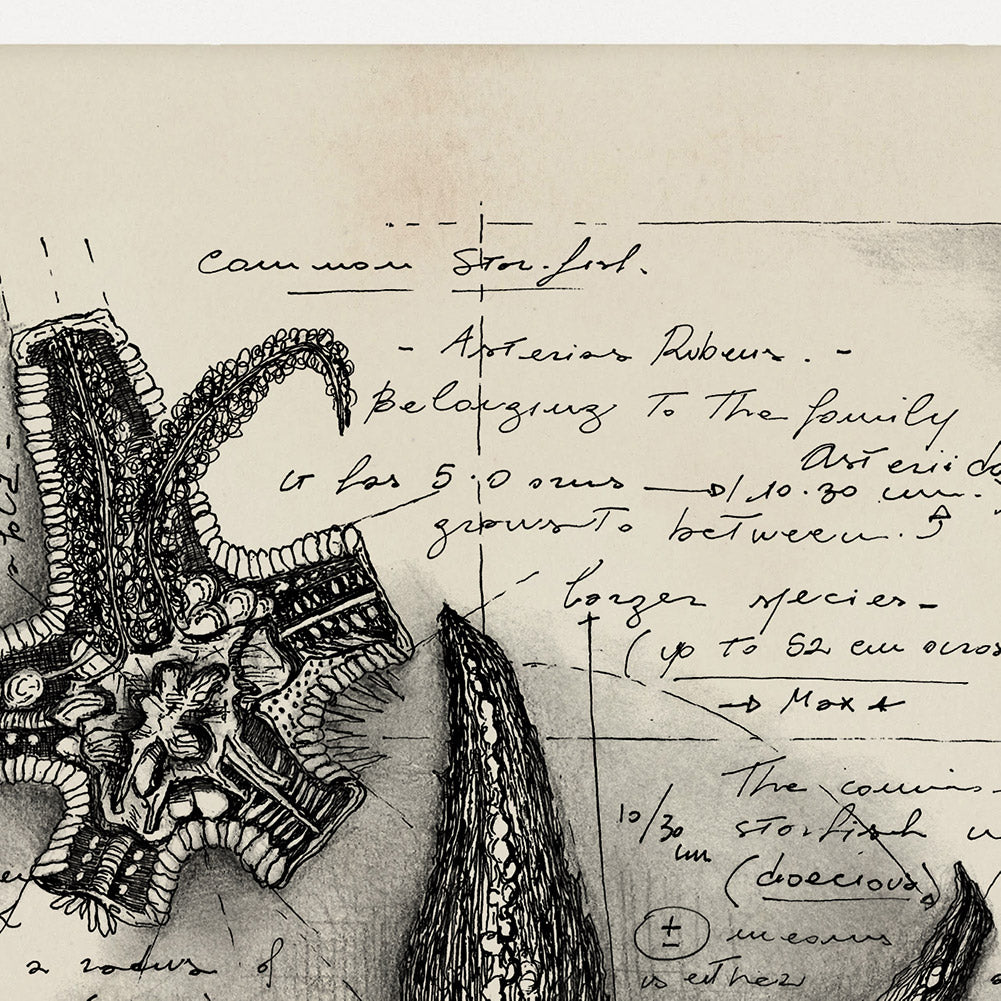 Common Star.fish.
- Asterias Rubens. -
Belonging to the family
Asteriidae
it has 5.0 arms → 10.30 cm.
grows to between.
larger species-
(up to 52 cm across
→ Max
The common
10/30 cm
starfish
(dioecious)
± means
is either
a radius of